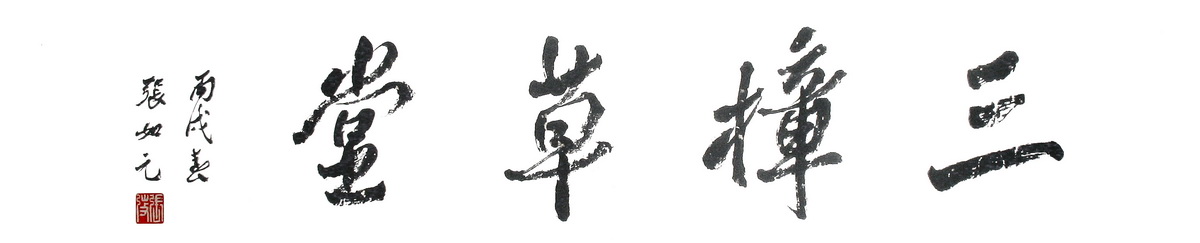 三樟草堂
丙戌春
張如元